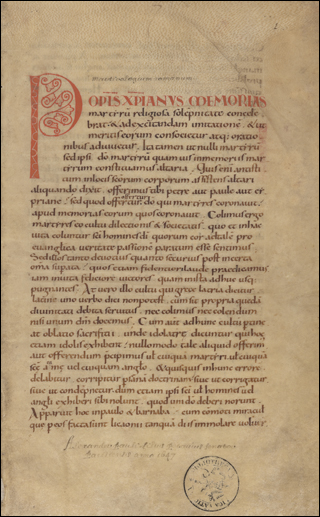 POPLS XPIANUS MEMORIAS
martẏrũ religiosa solepnitate concele
brat & ad excitandam imitatione & ut
meritis eorum consocietur atq; oratio
nibus adiuvetur Ita tamen ut nulli martẏrũ
sed ipsi dõ martẏrũ quamuis in memoriis mar
tẏrum constituamus altaria Quis eni antisti
tum in locis scõrum corporum assistens altari
aliquando dixit offerimus tibi petre aut paule aut cẏ
priane sed quod offertur dõ qui martẏres coronauit
apud memorias eorum quos coronauit Colimus ergo
martẏres eo cultu dilectionis & societatis quo & in hac
uita coluntur sci homines di quorum cor ad tale pro
euuanglica ueritate passione paratum esse sentimus
Sed illos tanto deuotius quanto securius post incerta
oma supata quos etiam fidentiore laude praedicamus
iam in uita feliciore uictores quam in ista adhuc usq;
pugnantes At uero illo cultu qui grece latria dicitur
latine uno uerbo dici non potest cum sit propria quedã
diuinitati debita seruitus nec colimus nec colendum
nisi unum dm docemus Cum aut ad hunc cultu ptine
at oblatio sacrificii unde idolatrie dicuntur qui hoc
etiam idolis exhibent nullo modo tale aliquid offerim
aut offerendum pcipimus ul cuiquã martẏri ul cuiquã
sce animę uel cuiquam anglo & quisquis in hunc errore
delabitur corripitur p sanã doctrinam siue ut corrigatur
siue ut condepnetur dum etiam ipsi sci ul homines uel
angli exhiberi sibi nolunt quod uni dõ deberi norunt
Apparuit hoc in paulo & barnaba cum cõmoti miracul
que p eos facta sunt licaonii tanquã diis immolare uoluer